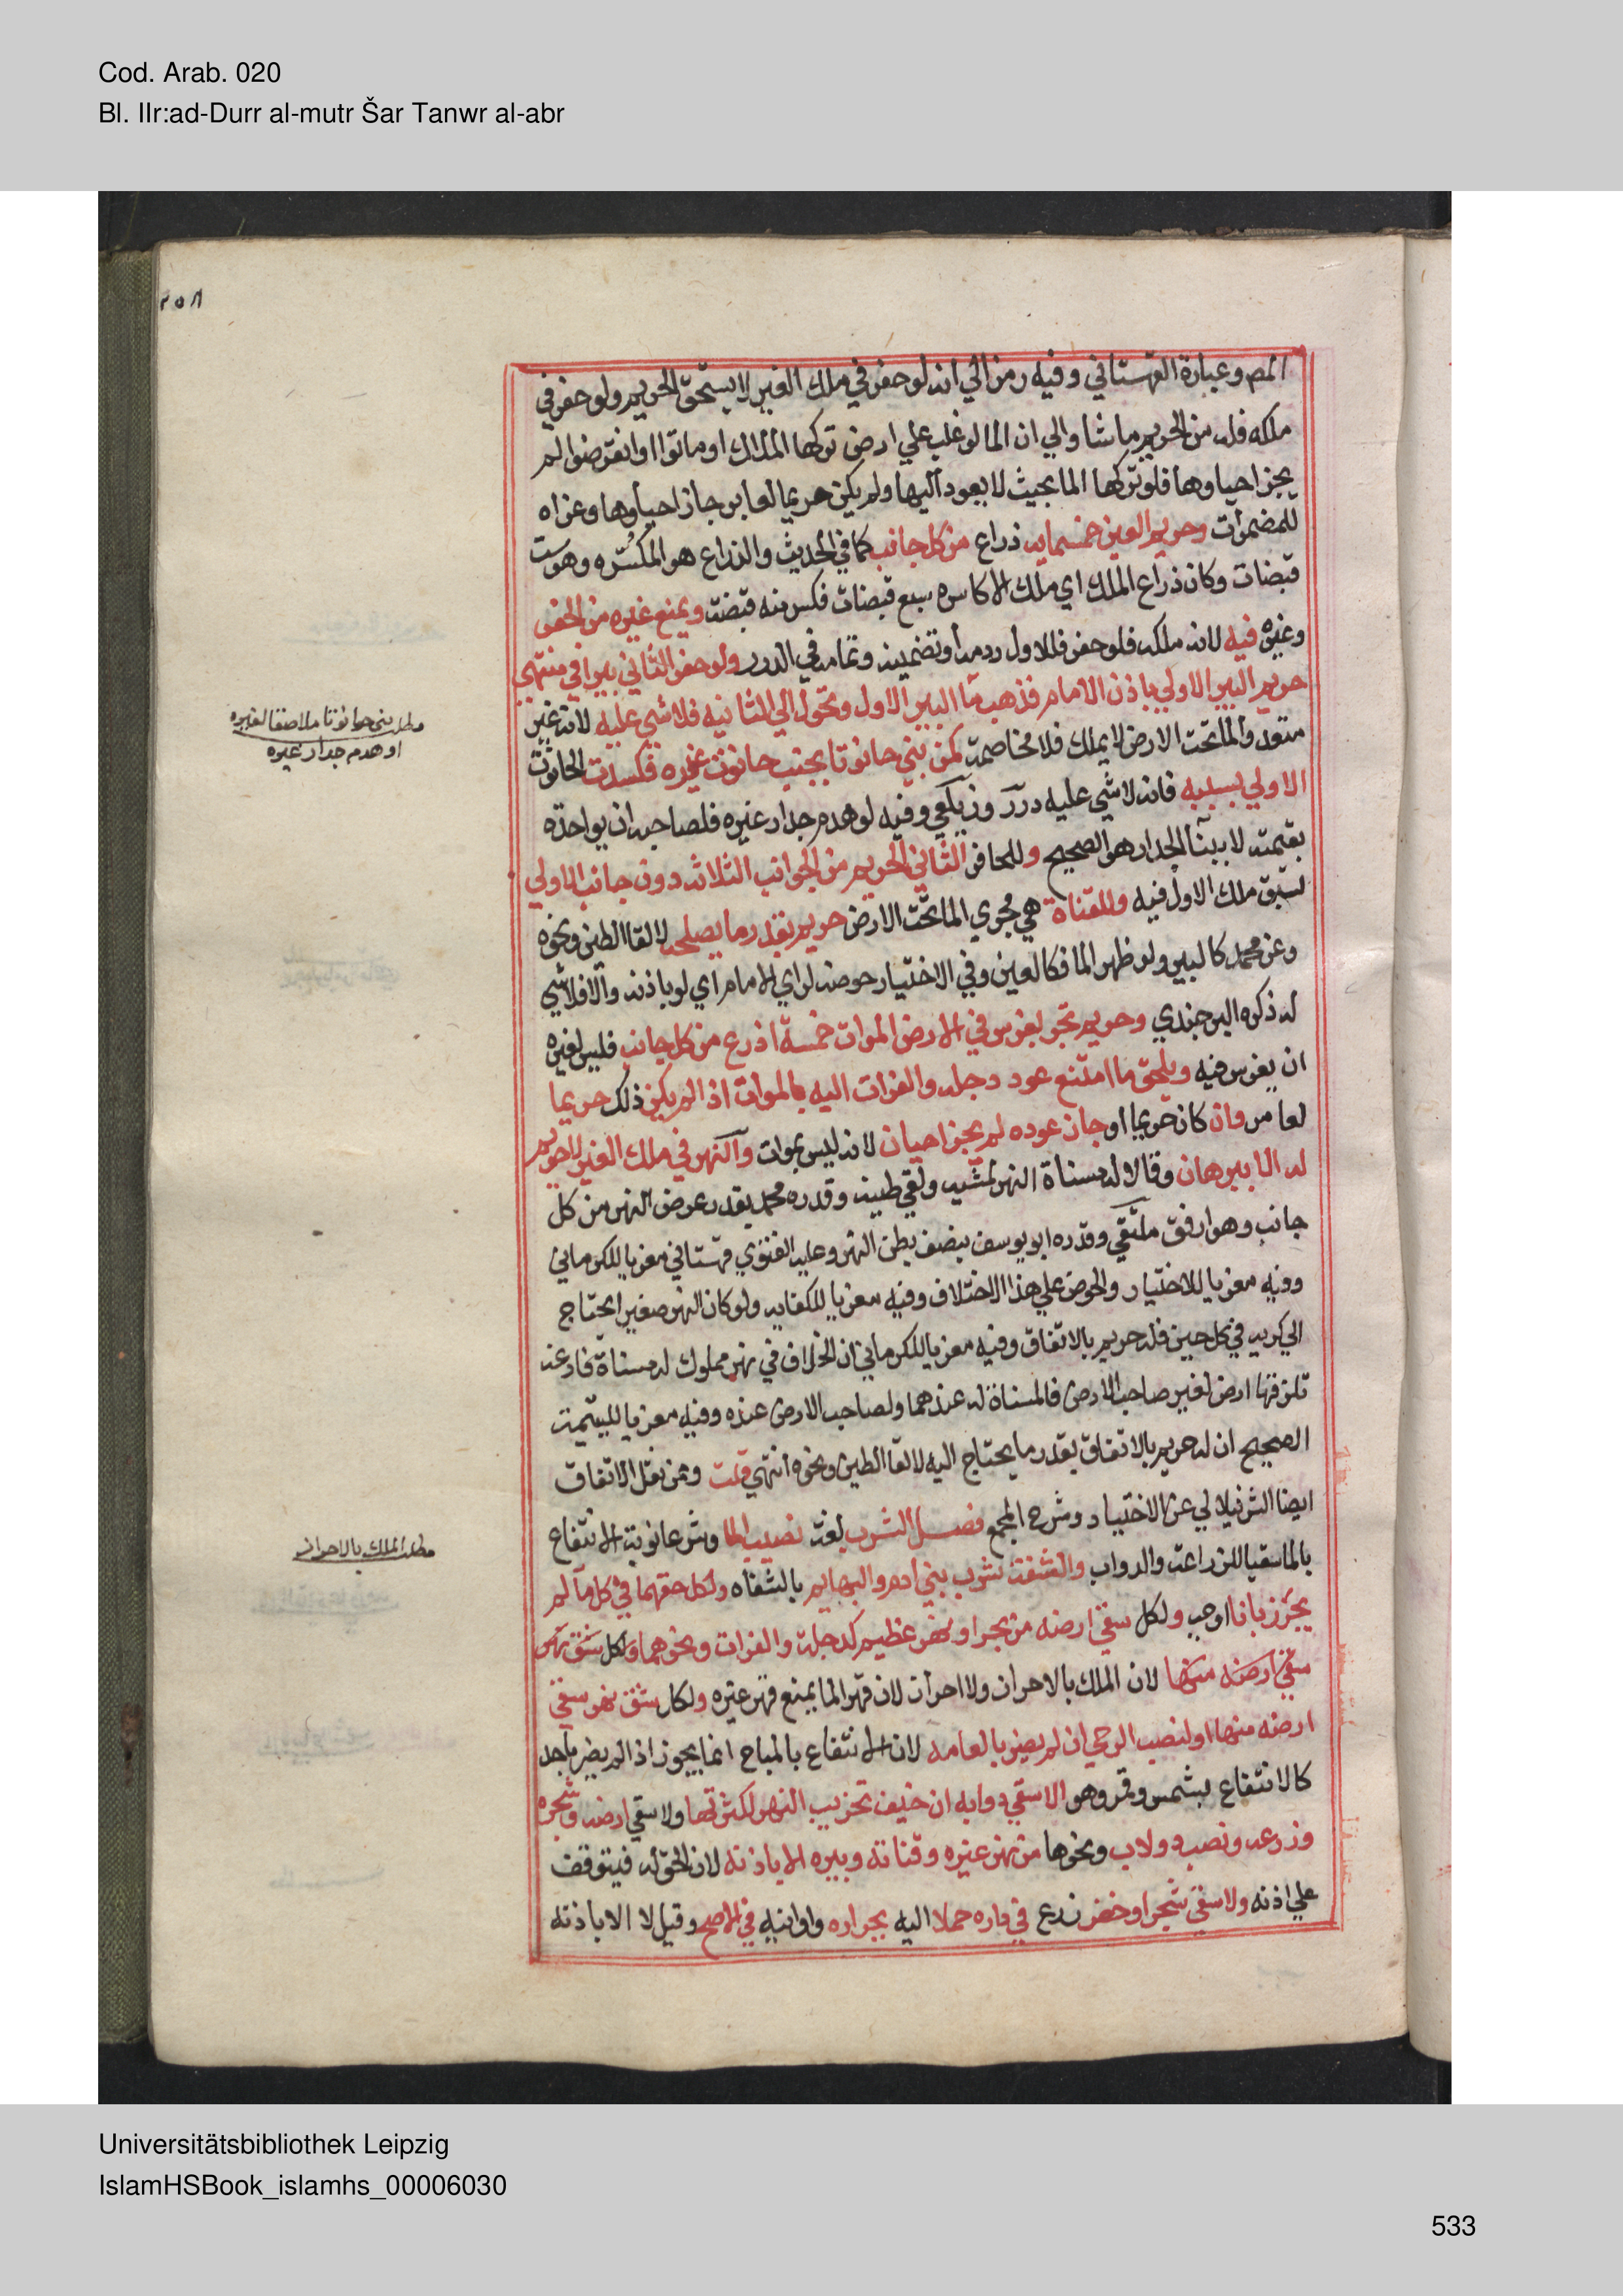 Cod. Arab. 020
Bl. IIr:ad-Durr al-mutr Šar Tanwr al-abr
٢٥٨
المصـ وعبارة القهستاني وفيه رمز الي انه لو حفر في ملك الغير لا يستحق الحريم ولو حفر في
ملكه فله من الحريم ما شا والي ان الما لو غلب علي ارض تركها الملاك او ماتوا او انقرضوا لم
يجز احياوها فلو تركها الما بحيث لا يعود اليها ولم يكن حريما لعامر جاز احياوها وعزاه
للمضمرات وحريم العين خمسمايه ذراع من كل جانب كما في الحديث والذراع هو المكسره وهو ست
قبضات وكان ذراع الملك اي ملك الاكاسره سبع قبضات فكسر منه قبضة ويمنع غيره من الحفر
وغيره فيه لانه ملكه فلو حفر فللاول ردمه او تضمينه وتمامه في الدرر ولو حفر الثاني بيرا في منتهي
حريم البير الاولي باذن الامام فذهب ما البير الاول وتحول الي الثانيه فلا شي عليه لانه غير
متعد والما تحت الارض لا يملك فلا مخاصمة كمن بني حانوتا بجنب حانوت غيره فكسدت الحانوت
الاولي بسببه فانه لا شي عليه درر وزيلعي وفيه لو هدم جدار غيره فلصاحبه ان يواخذه
بقيمته لا ببنا الجدار هو الصحيح وللحافر الثاني الحريم من الجوانب الثلاثه دون جانب الاولي
لسبق ملك الاول فيه وللقناة هي مجري الما تحت الارض حريم بقدر ما يصلحه لالقا الطين ونحوه
وعن محمد كالبير ولو ظهر الما فكالعين وفي الاختيار حوضه لراي الامام اي لو باذنه والا فلا شي
له ذكره البرجندي وحريم شجر يغرس في الارض الموات خمسة اذرع من كل جانب فليس لغيره
ان يغرس فيه ويلحق ما امتنع عود دجله والفرات اليه بالموات اذا لم يكن ذلك حريما
لعامر فان كان حريما او جاز عوده لم يجز احيان لانه ليس بموات والنهر في ملك الغير لا حريم
له الا ببرهان وقالا له مسناة النهر لمشيه ولقي طينه وقدره محمد بقدر عرض النهر من كل
جانب وهو ارفق ملتقي وقدره ابو يوسف بنصف بطن النهر وعليه الفتوي قهستاني معزيا للكرماني
وفيه معزيا للاختيار والحوض علي هذا الاختلاف وفيه معزيا للكفايه ولو كان النهر صغيرا يحتاج
الي كريه في كل حين فله حريم بالاتفاق وفيه معزيا للكرماني ان الخلاف في نهر مملوك له مسناة فارغه
تلزقها ارض لغير صاحب الارض فالمسناة له عندهما ولصاحب الارض عنده وفيه معزيا لليتيمة
الصحيح ان له حريم بالاتفاق بقدر ما يحتاج اليه لالقا الطين ونحوه انتهي قلت وممن نقل الاتفاق
ايضا الشرنبلالي عن الاختيار وشرح المجمع فصل الشرب لغة نصيب الما وشرعا نوبة الانتفاع
بالما سقيا للزراعة والدواب والشفة شرب بني ادم والبهايم بالشفاه ولكل حقهما في كل ما لم
يحرز بانا اوحب ولكل سقي ارضه من بحر او نهر عظيم كدجلة والفرات ونحوهما ولكل شق نهر
سقي ارضه منها لان الملك بالاحراز ولا احراز لان قهر الما يمنع قهر غيره ولكل شق نهر سقي
ارضه منها او لنصب الرحي ان لم يضر بالعامه لان الانتفاع بالمباح انما يجوز اذا لم يضر باحد
كالانتفاع بشمس وقمر وهو الا سقي دوابه ان خيف تخريب النهر لكثرتها ولا سقي ارضه وشجره
وزرعه ونصب دولاب ونحوها من نهر غيره وقناته وبيره الا باذنه لان الحق له فيتوقف
علي اذنه ولا سقي شجر او خضر زرع في داره حملا اليه بجراره واوانيه في الاصح وقيل لا الا باذنه
مطلب بني حانوتا ملاصقا لغيره
او هدم جدار غيره
مطلب الملك بالاحراز
Universitätsbibliothek Leipzig
IslamHSBook_islamhs_00006030
533